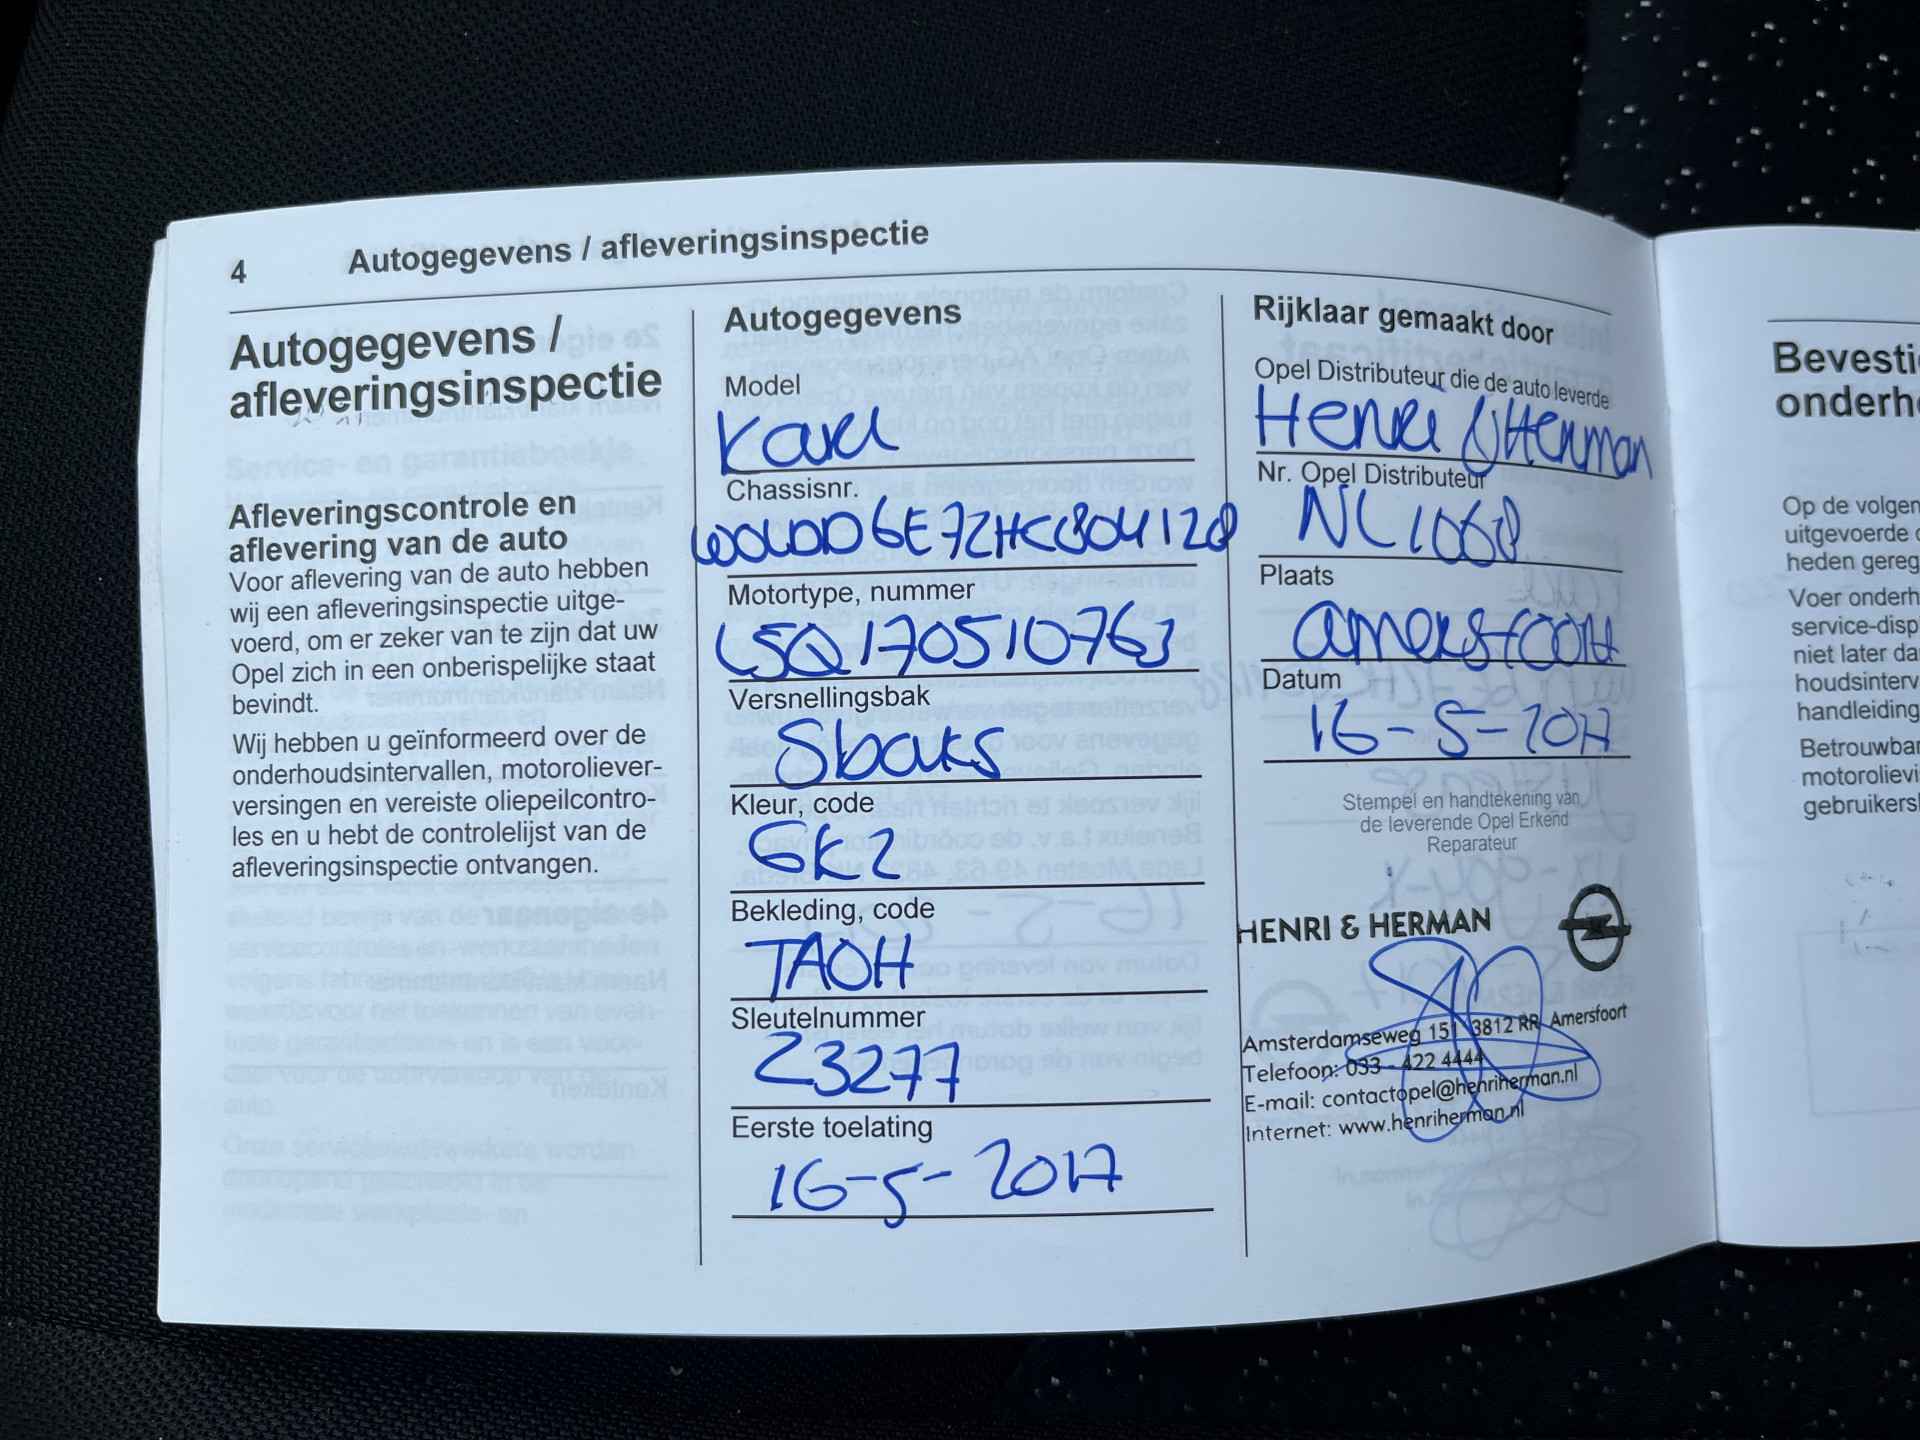 4 Autogegevens / afleveringsinspectie
Autogegevens /
afleveringsinspectie
Afleveringscontrole en
aflevering van de auto
Voor aflevering van de auto hebben
wij een afleveringsinspectie uitge-
voerd, om er zeker van te zijn dat uw
Opel zich in een onberispelijke staat
bevindt.
Wij hebben u geïnformeerd over de
onderhoudsintervallen, motoroliever-
versingen en vereiste oliepeilcontro-
les en u hebt de controlelijst van de
afleveringsinspectie ontvangen.
Autogegevens
Model
Karl
Chassisnr.
W0LDD6E72HC804128
Motortype, nummer
LSQ170510763
Versnellingsbak
5baks
Kleur, code
GK2
Bekleding, code
TAOH
Sleutelnummer
Z3277
Eerste toelating
16-5-2017
Rijklaar gemaakt door
Opel Distributeur die de auto leverde
Henri & Herman
Nr. Opel Distributeur
NL1068
Plaats
Amersfoort
Datum
16-5-2017
Stempel en handtekening van
de leverende Opel Erkend
Reparateur
HENRI & HERMAN
Amsterdamseweg 151 3812 RR Amersfoort
Telefoon: 033 - 422 4444
E-mail: contactopel@henriherman.nl
Internet: www.henriherman.nl
Bevesti
onderh
Op de volgen
uitgevoerde
heden gereg
Voer onderh
service-disp
niet later da
houdsinterv
handleiding
Betrouwbar
motorolievi
gebruikers